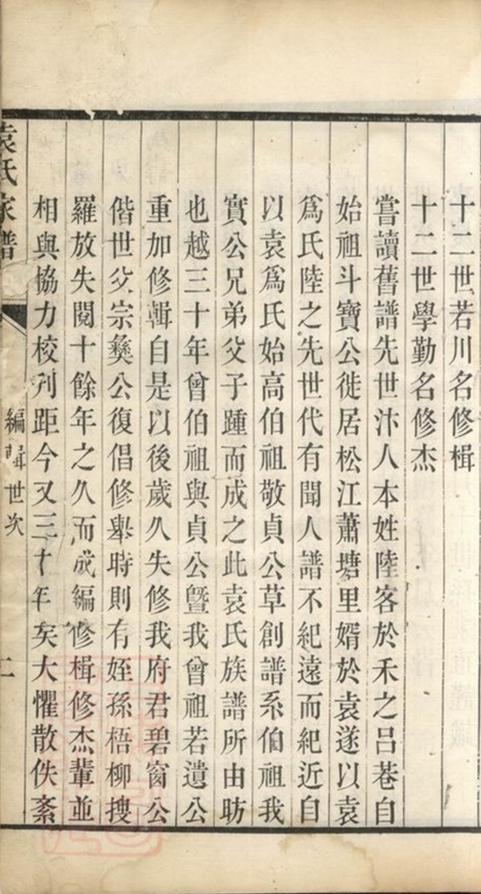 十二世若川名修楫
十二世學勤名修杰
嘗讀舊譜先世汴人本姓陸客於禾之呂巷自
始祖斗寶公徙居松江蕭塘里婿於袁遂以袁
爲氏陸之先世代有聞人譜不紀遠而紀近自
以袁爲氏始高伯祖敬貞公草創譜系伯祖我
實公兄弟父子踵而成之此袁氏族譜所由昉
也越三十年曾伯祖與貞公曁我曾祖若遺公
重加修輯自是以後歲久失修我府君碧窗公
偕世父宗彝公復倡修舉時則有姪孫梧柳搜
羅放失閱十餘年之久而成編修楫修杰輩並
相與協力校列距今又三十年矣大懼散佚紊
袁氏家譜
編輯世次
二